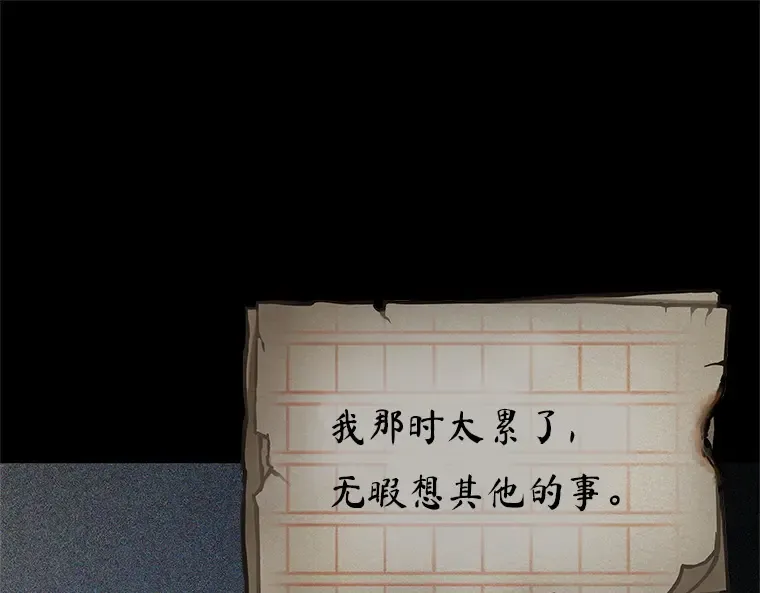 我那时太累了，
无暇想其他的事。